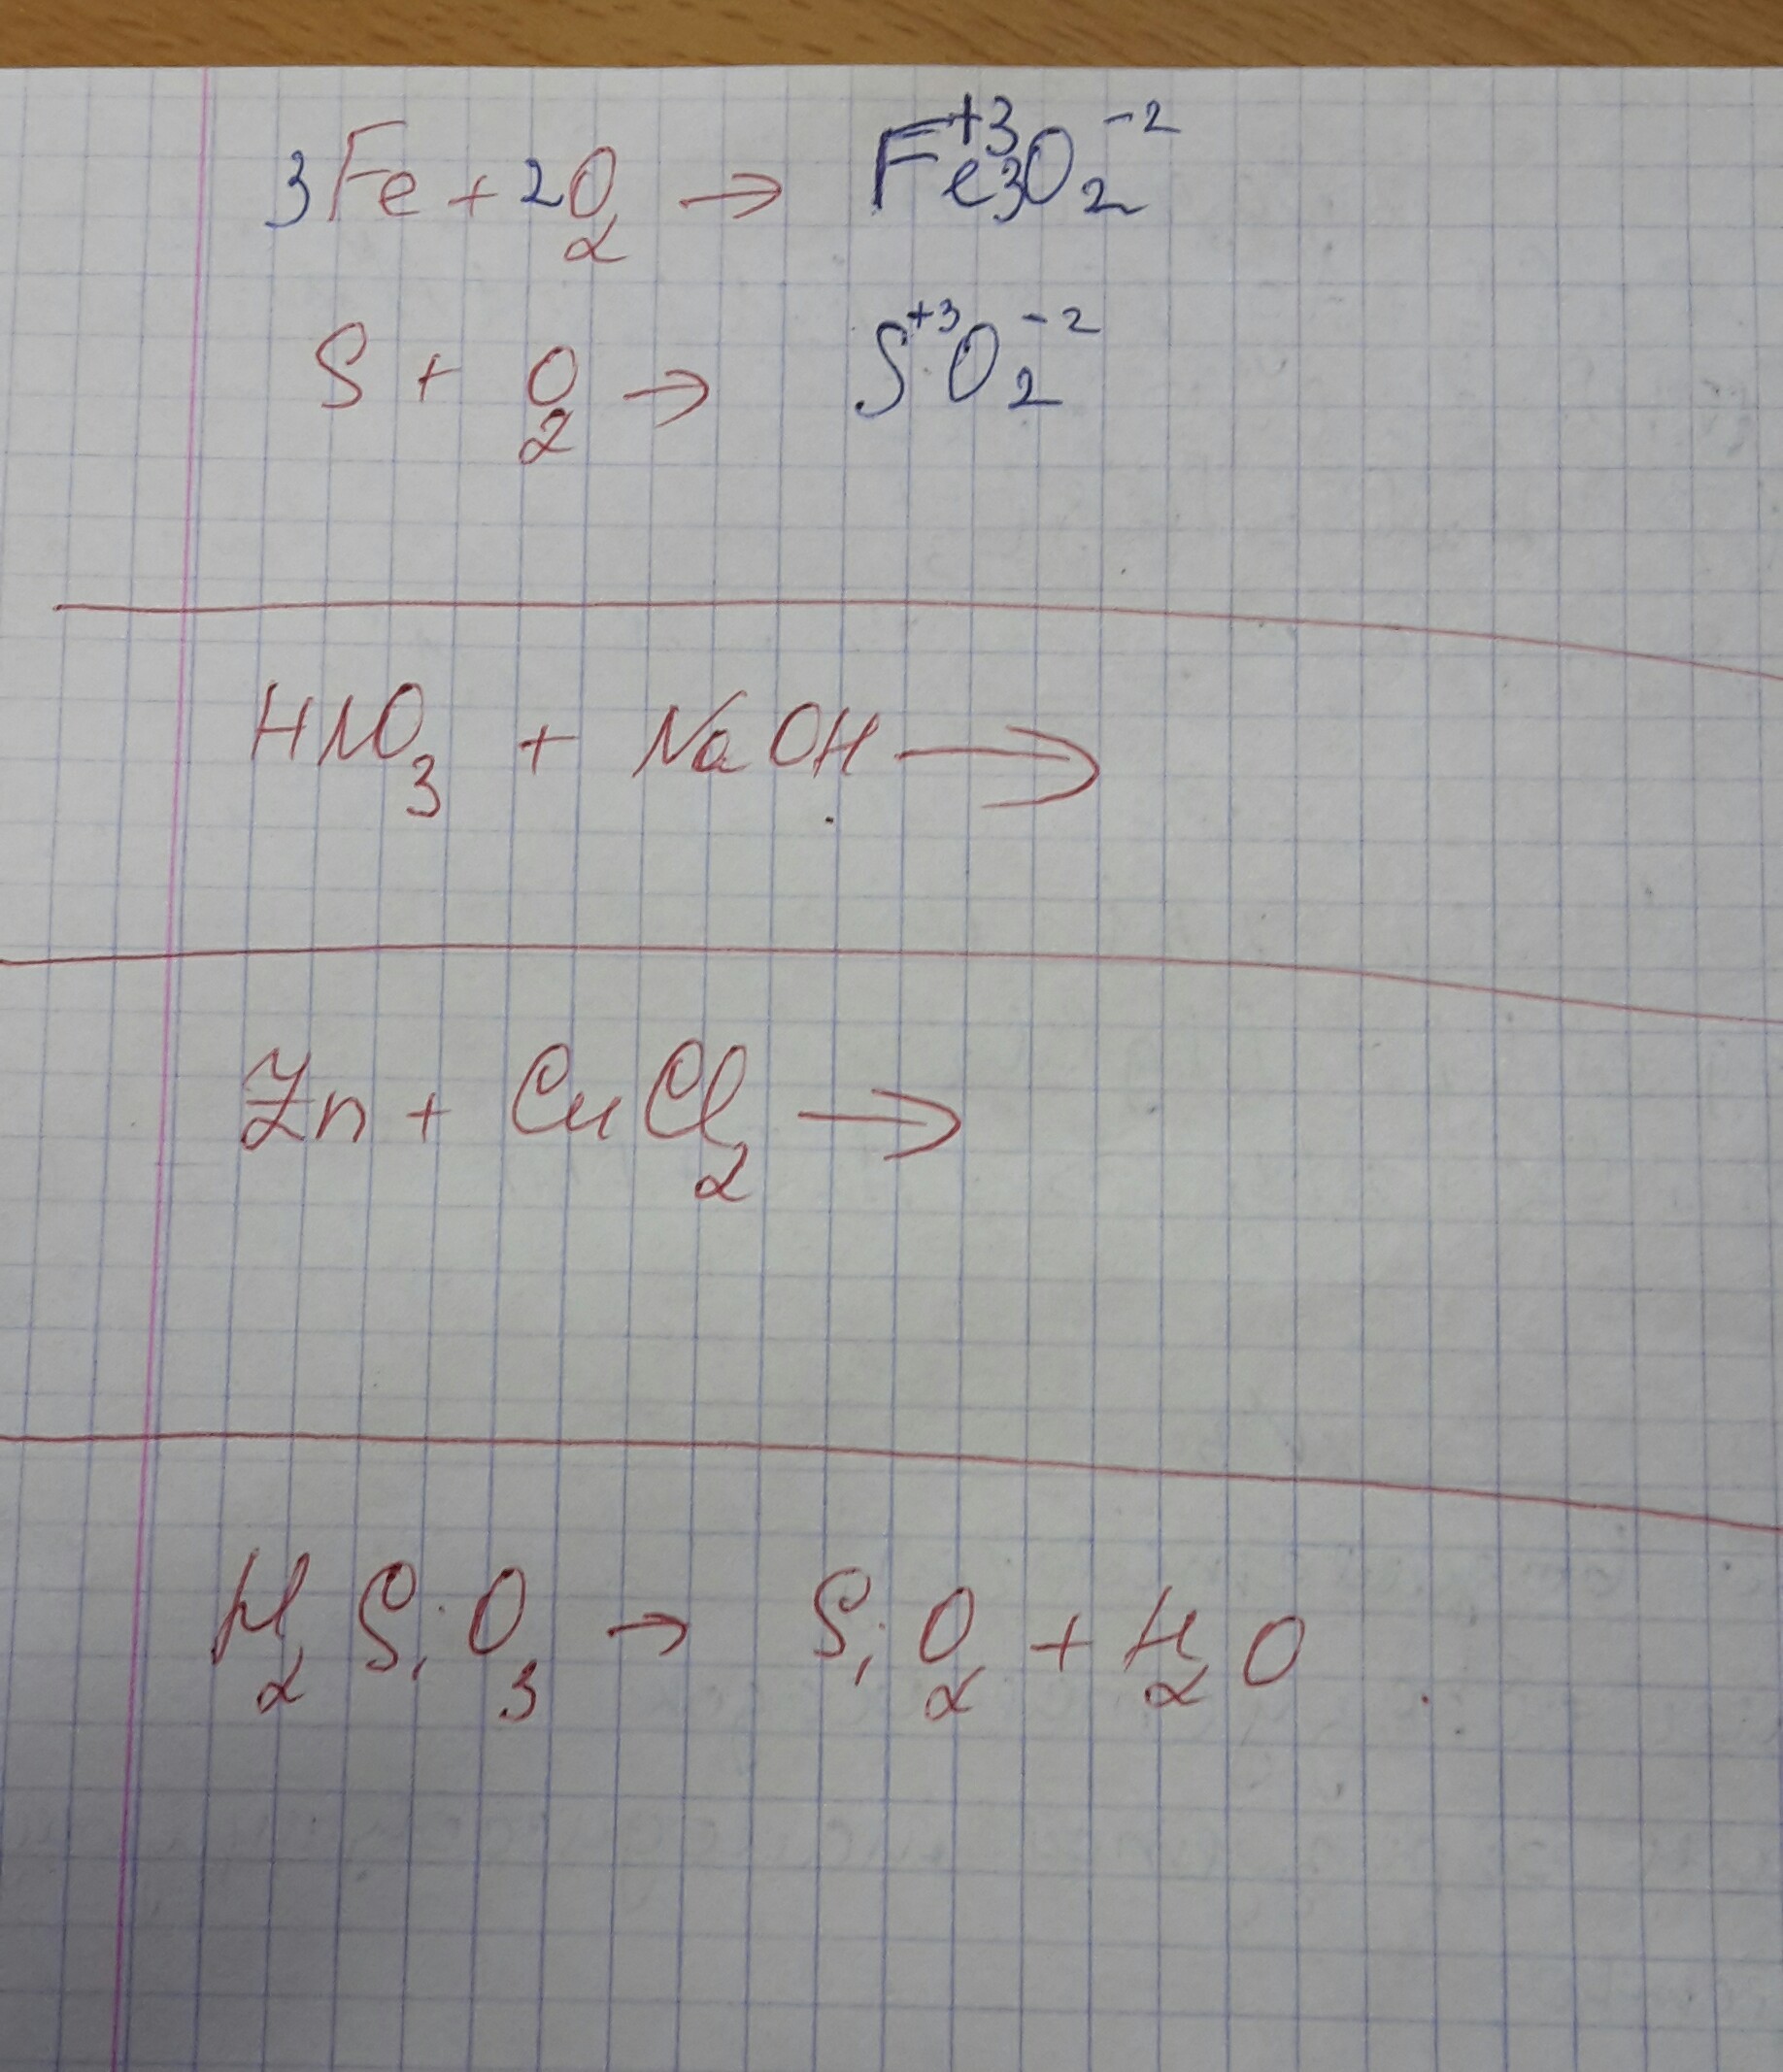 3Fe + 2O₂ → Fe⁺³₃O₂⁻²
S + O₂ → S⁺³O₂⁻²
HNO₃ + NaOH →
Zn + CuCl₂ →
H₂SiO₃ → SiO₂ + H₂O